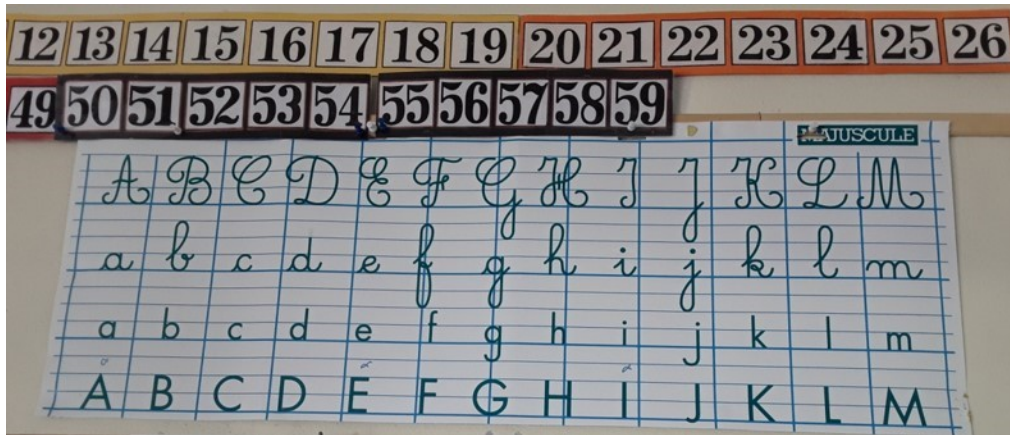 12 13 14 15 16 17 18 19 20 21 22 23 24 25 26
49 50 51 52 53 54 55 56 57 58 59
MAJUSCULE
A B C D E F G H I J K L M
a b c d e f g h i j k l m
a b c d e f g h i j k l m
A B C D E F G H I J K L M